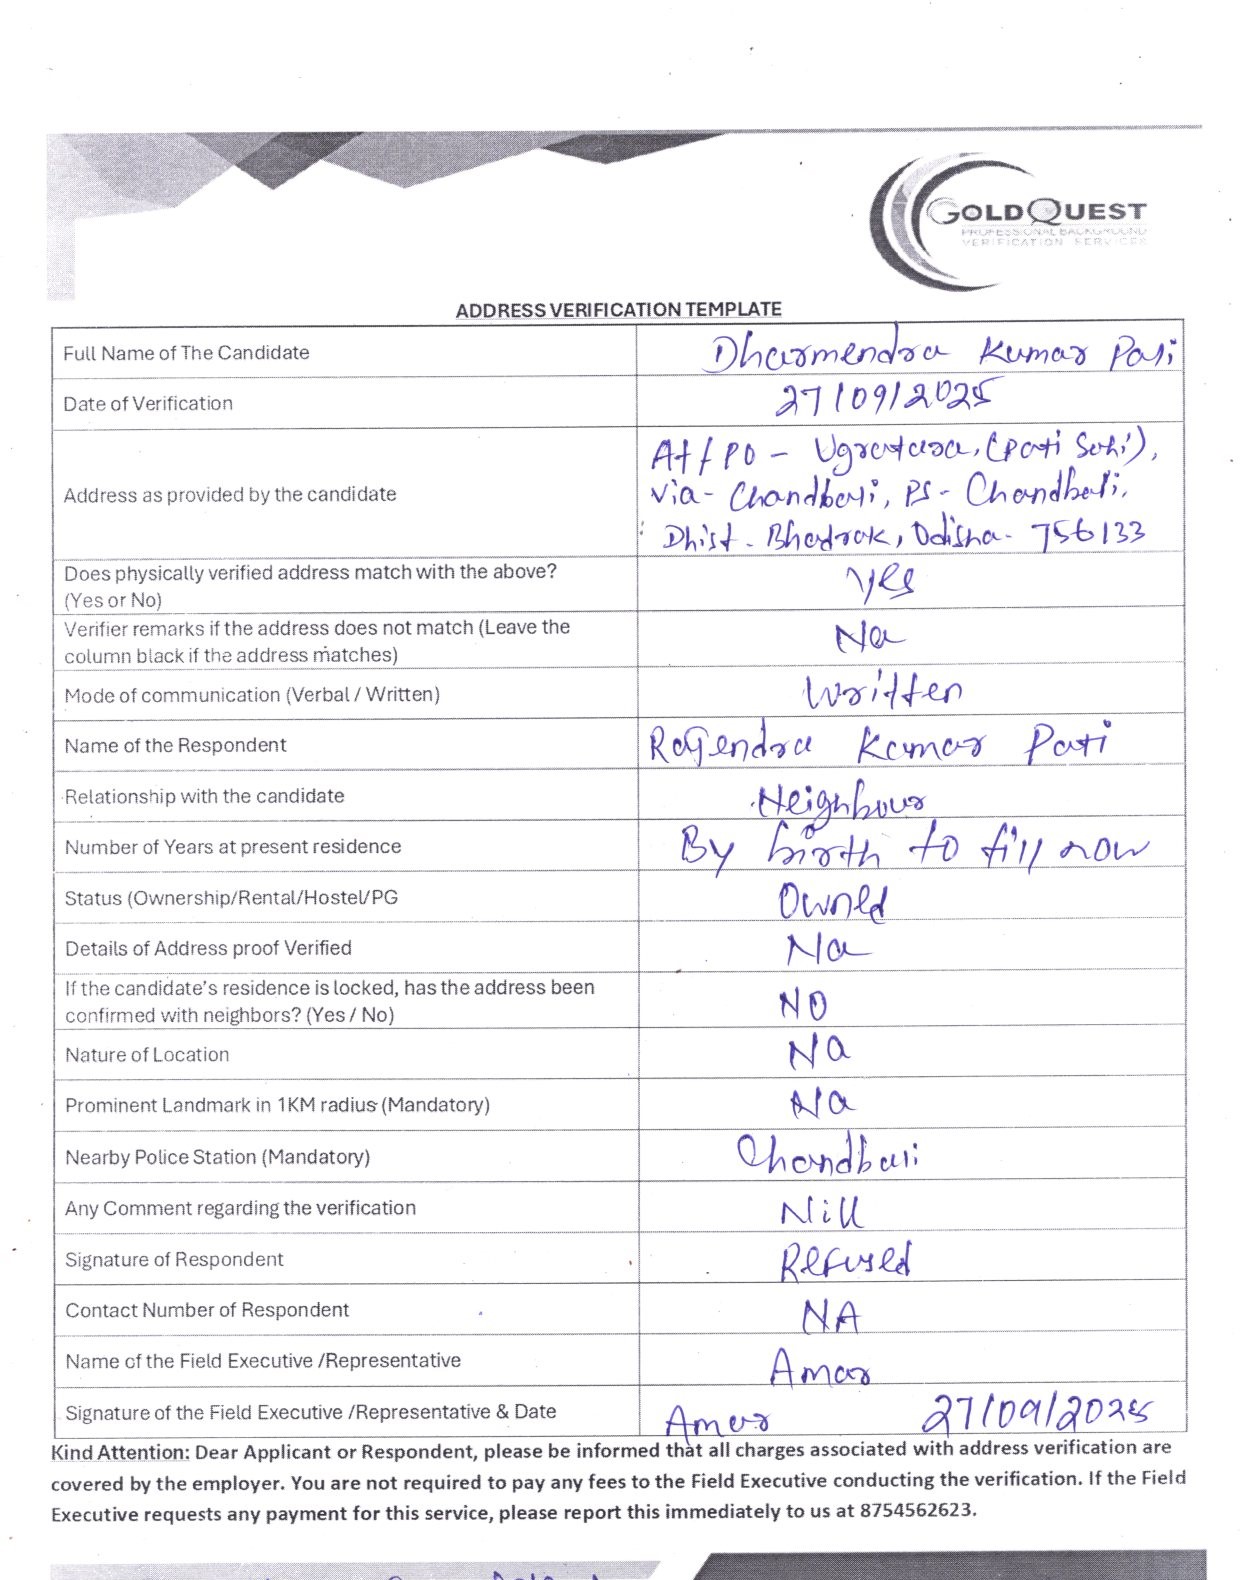 GOLDQUEST
PROFESSIONAL BACKGROUND
VERIFICATION SERVICES
ADDRESS VERIFICATION TEMPLATE
Full Name of The Candidate Dharmendra Kumar Pati
Date of Verification 27/09/2025
Address as provided by the candidate At/PO - Ugratara, (Pati Sahi),
Via - Chandbali, PS - Chandbali,
Dhist - Bhadrak, Odisha - 756133
Does physically verified address match with the above?
(Yes or No) Yes
Verifier remarks if the address does not match (Leave the
column black if the address matches) Na
Mode of communication (Verbal / Written) Written
Name of the Respondent Rajendra Kumar Pati
Relationship with the candidate Neighbour
Number of Years at present residence By birth to till now
Status (Ownership/Rental/Hostel/PG Owned
Details of Address proof Verified Na
If the candidate's residence is locked, has the address been
confirmed with neighbors? (Yes / No) NO
Nature of Location Na
Prominent Landmark in 1KM radius (Mandatory) Na
Nearby Police Station (Mandatory) Chandbali
Any Comment regarding the verification Nill
Signature of Respondent Refused
Contact Number of Respondent NA
Name of the Field Executive /Representative Amar
Signature of the Field Executive /Representative & Date Amar 27/09/2025
Kind Attention: Dear Applicant or Respondent, please be informed that all charges associated with address verification are
covered by the employer. You are not required to pay any fees to the Field Executive conducting the verification. If the Field
Executive requests any payment for this service, please report this immediately to us at 8754562623.